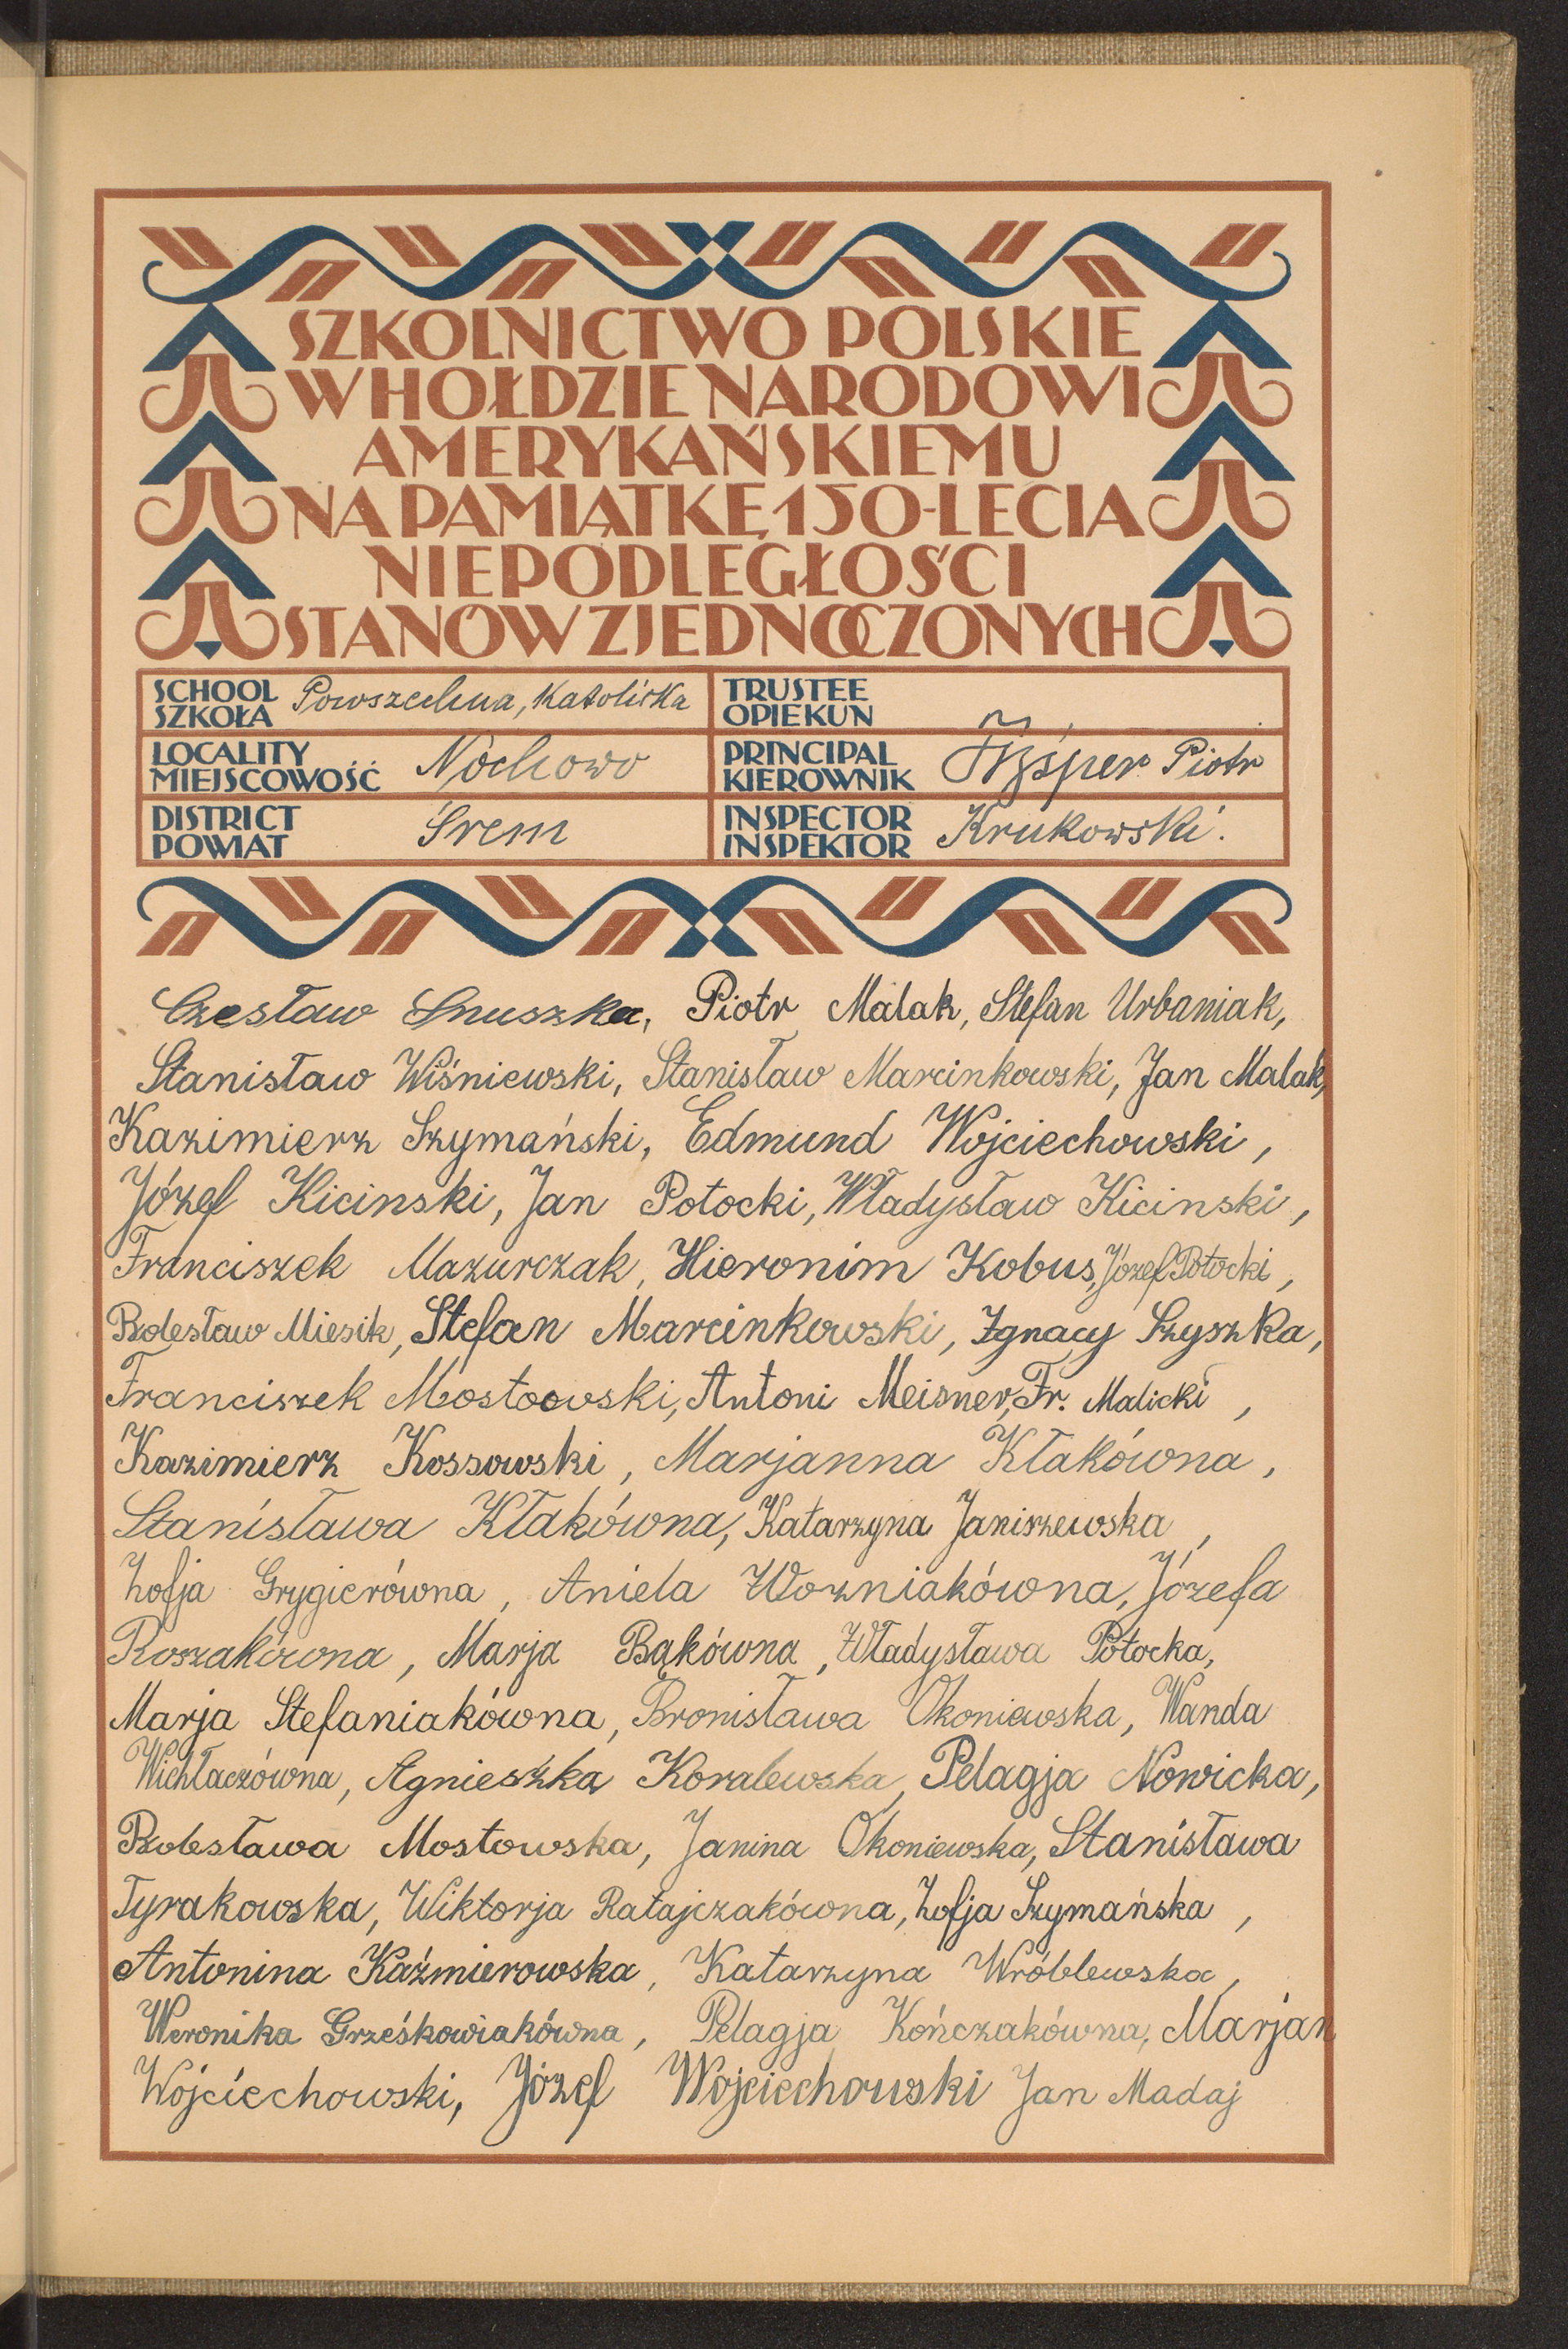 SZKOLNICTWO POLSKIE
W HOŁDZIE NARODOWI
AMERYKAŃSKIEMU
NA PAMIĄTKĘ 150-LECIA
NIEPODLEGŁOŚCI
STANÓW ZJEDNOCZONYCH
SCHOOL SZKOŁA Powszechna, Katolicka
TRUSTEE OPIEKUN
LOCALITY MIEJSCOWOŚĆ Nochowo
PRINCIPAL KIEROWNIK Piotr
DISTRICT POWIAT Śrem
INSPECTOR INSPEKTOR Krukowski.
Czesław Smuszka, Piotr Malak, Stefan Urbaniak,
Stanisław Wiśniewski, Stanisław Marcinkowski, Jan Malak,
Kazimierz Szymański, Edmund Wojciechowski,
Józef Kicinski, Jan Potocki, Władysław Kicinski,
Franciszek Mazurczak, Hieronim Kobus, Józef Potocki,
Bolesław Miesik, Stefan Marcinkowski, Ignacy Szyszka,
Franciszek Mostoowski, Antoni Meisner, Fr. Malicki,
Kazimierz Kossowski, Marjanna Kłakówna,
Stanisława Kłakówna, Katarzyna Janiszewska,
Zofja Grygierówna, Aniela Wozniakówna, Józefa
Roszakówna, Marja Bąkówna, Władysława Potocka,
Marja Stefaniakówna, Bronisława Okoniewska, Wanda
Wichłaczówna, Agnieszka Koralewska, Pelagja Nowicka,
Bolesława Mostowska, Janina Okoniewska, Stanisława
Tyrakowska, Wiktorja Ratajczakówna, Zofja Szymańska,
Antonina Kaźmierowska, Katarzyna Wróblewska,
Weronika Grześkowiakówna, Pelagja Kończakówna, Marjan
Wojciechowski, Józef Wojciechowski Jan Madaj